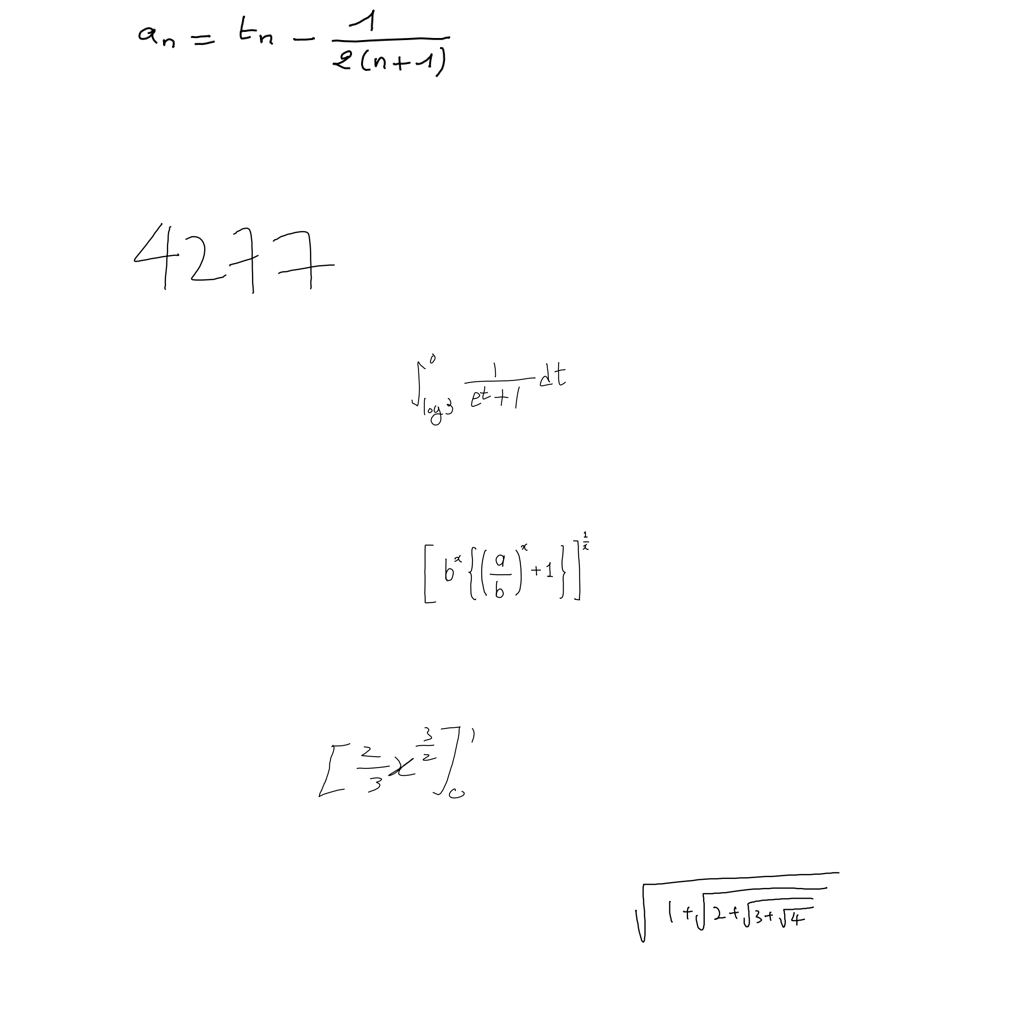 a_n = t_n - \frac{1}{2(n+1)}
4277
\int_{\log 3}^{0} \frac{1}{e^t+1} dt
\left[ b^x \left\{ \left( \frac{a}{b} \right)^x + 1 \right\} \right]^{\frac{1}{x}}
\left[ \frac{2}{3} x^{\frac{3}{2}} \right]_0^1
\sqrt{1+\sqrt{2+\sqrt{3+\sqrt{4}}}}